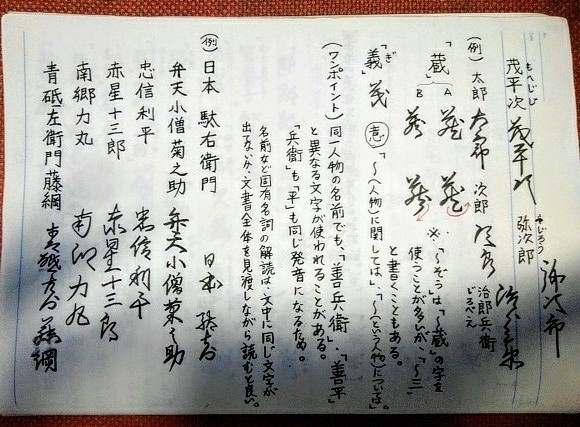 もへじ
茂平次 茂平次 やじろう 弥次郎 弥次郎
(例) 太郎 太郎 次郎 次郎 治郎兵衛 じろべえ 治郎兵衛
「蔵」 A 蔵 蔵 ※「〜ぞう」は「〜蔵」の字を
B 蔵 蔵 使うことが多いが、「〜三」
と書くこともある。
ぎ
「義」 義 意 「〜(人物)に関しては」、「〜(という人物)については」。
(ワンポイント) 同一人物の名前でも、「善兵衛」、「善平」
と異なる文字が使われることがある。
「兵衛」も「平」も同じ発音になるため。
名前など固有名詞の解読は、文中に同じ文字が
出ないか、文書全体を見渡しながら読むと良い。
(例) 日本 駄右衛門 日本 駄右衛門
弁天小僧菊之助 弁天小僧菊之助
忠信利平 忠信利平
赤星十三郎 赤星十三郎
南郷力丸 南郷力丸
青砥左衛門藤綱 青砥左衛門藤綱